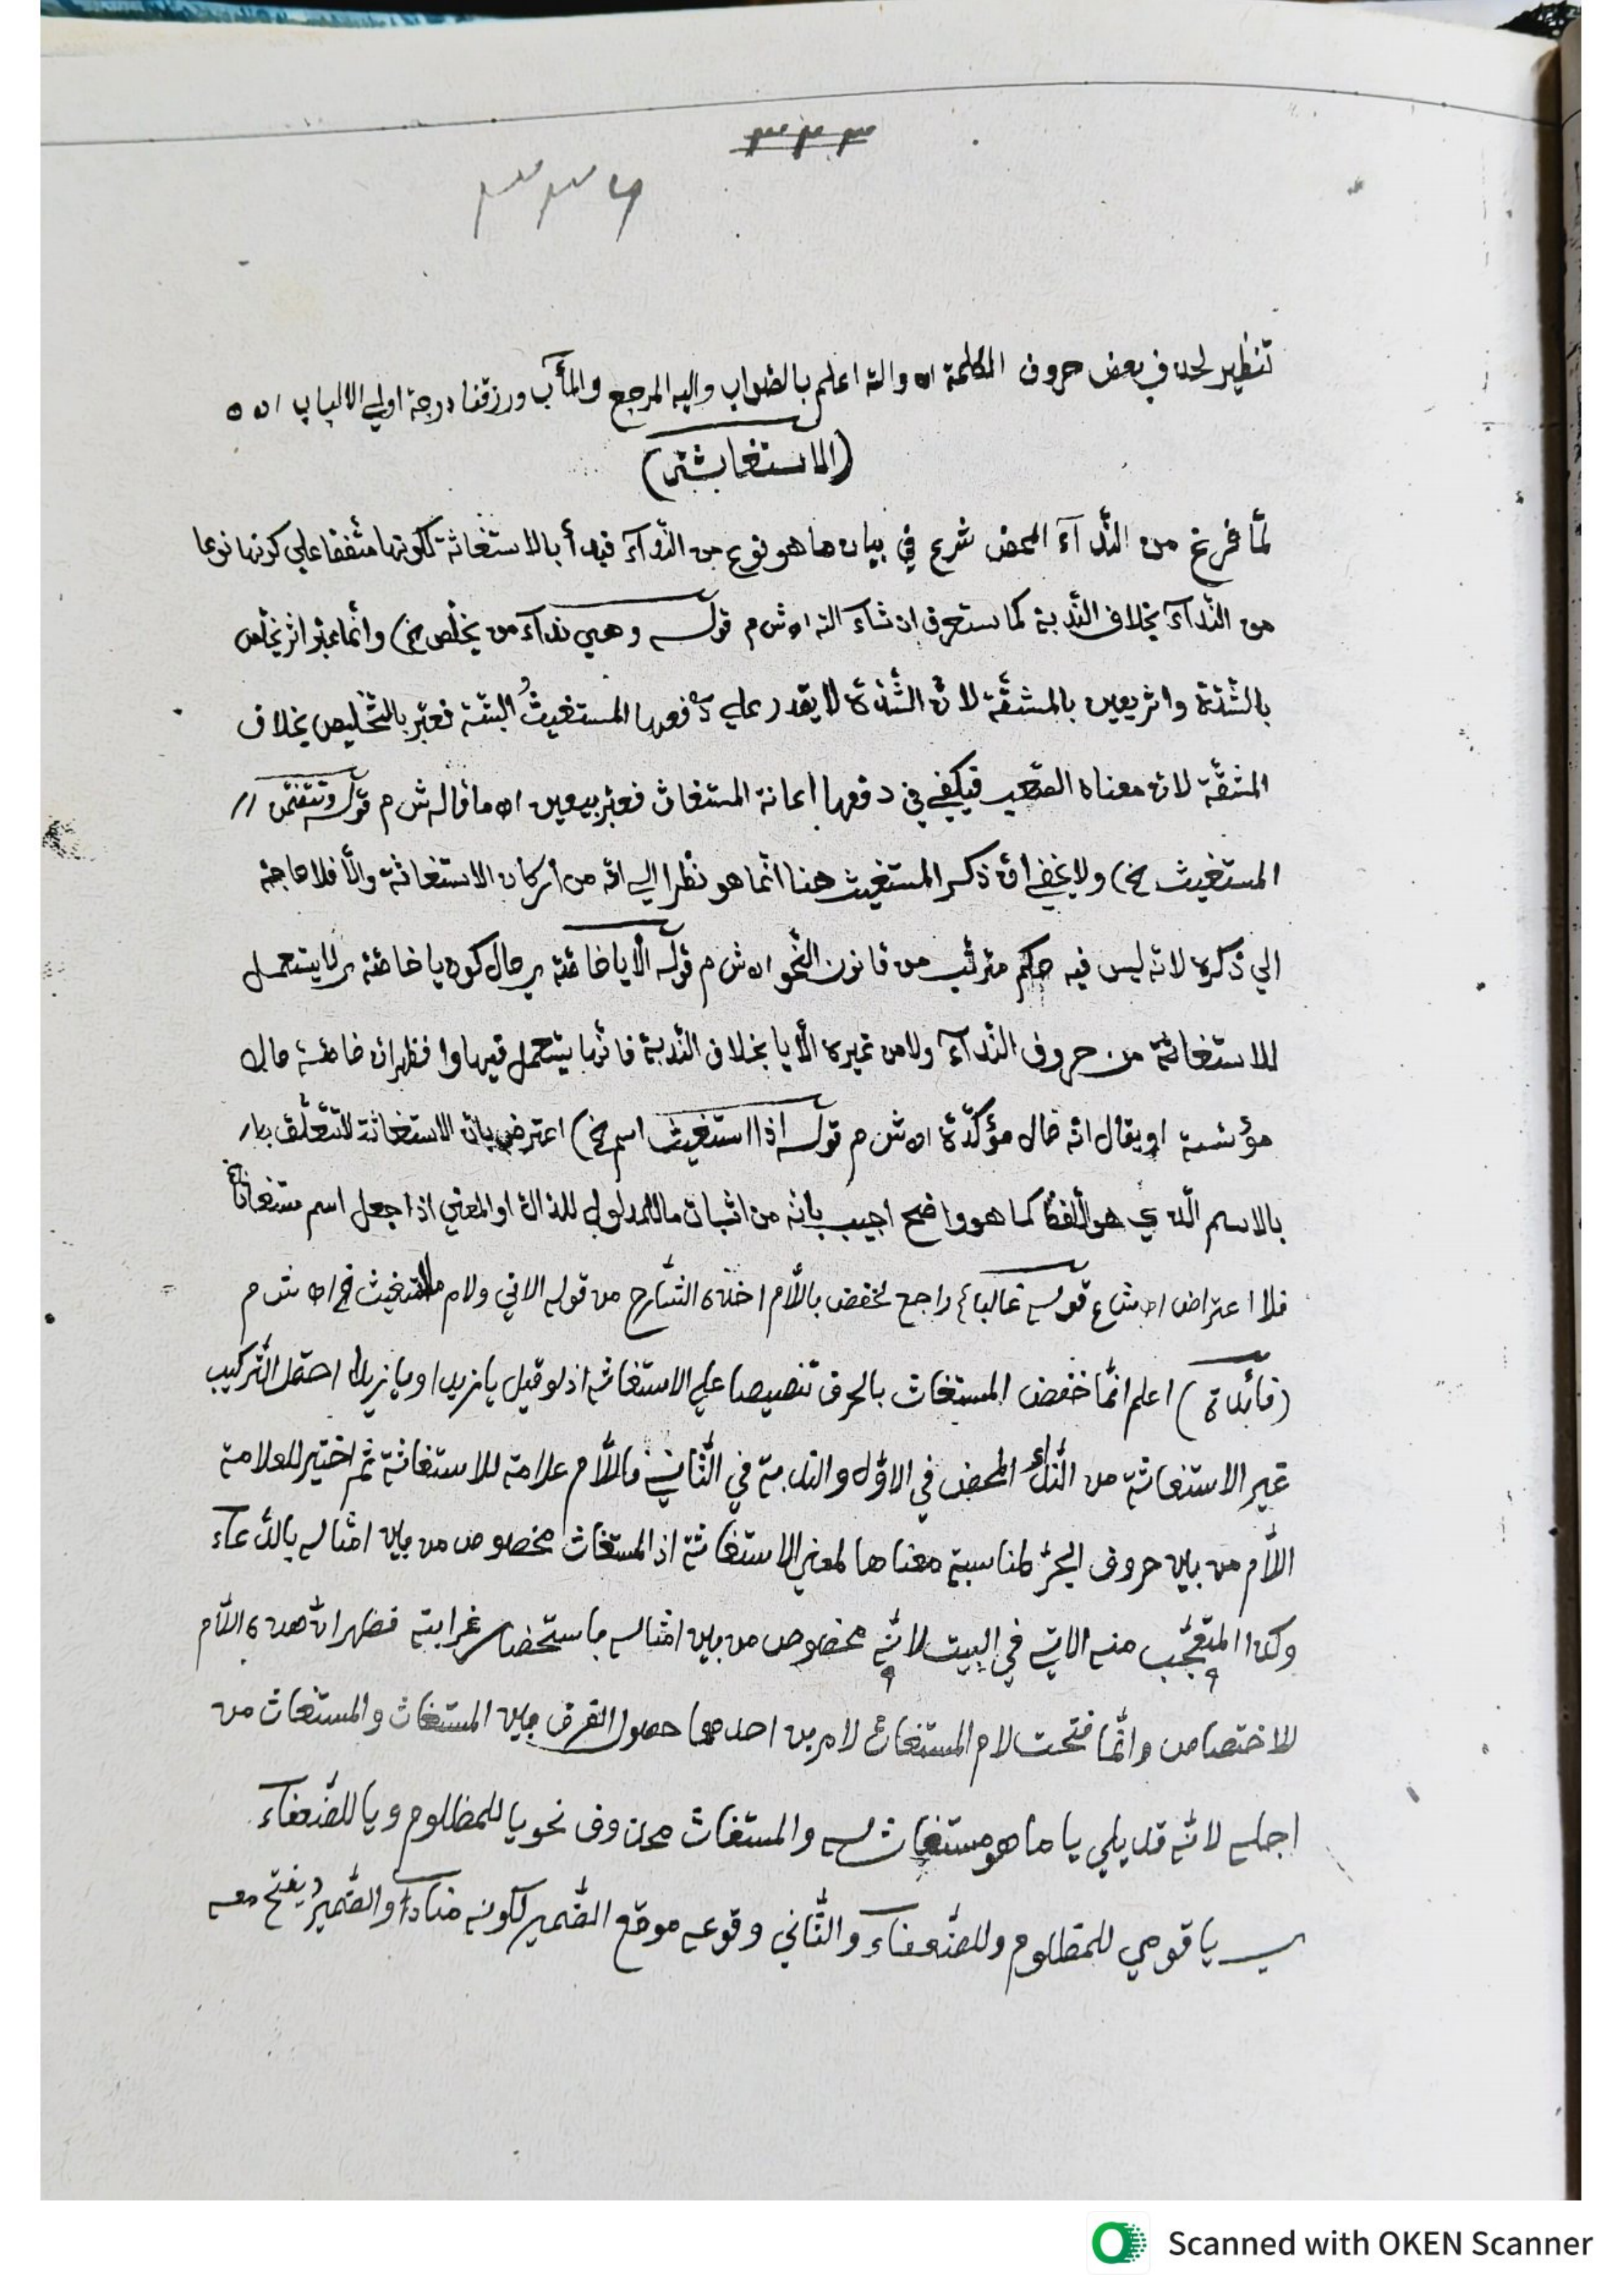 ٣٣٣
٣٣٦
تنظير لحذف بعض حروف الكلمة اه والله اعلم بالصواب واليه المرجع والمأب ورزقنا درجة اولي الالباب اه
(الاستغاثة)
لمّا فرغ من النّدآء المحض شرع في بيان ما هو نوع من النّدآء فبدأ بالاستغاثة لكونها متّفقا علي كونها نوعا
من النّدآء بخلاف النّدبة كما ستعرف ان شآء الله اه ش م قوله وهي ندآء من يخلّص الخ) وانّما عبّر اثر يخلّص
بالشّدّة واثر يعين بالمشقّة لانّ الشّدّة لا يقدر علي دفعها المستغيثُ البتّة فعبّر بالتّخليص بخلاف
المشقّة لانّ معناه الصّعب فيكفي في دفعها اعانة المستغاث فعبّر بيعين اه ما قاله ش م قوله وتتضمّن
المستغيث الخ) ولا يخفي انّ ذكر المستغيث هنا انّما هو نظرا الي انّه من أركان الاستغاثة والّا فلا حاجة
الي ذكره لانّه ليس فيه حكم مترتّب من قانون النّحو اه ش م قوله الّا يا خاصّة ير حال كون يا خاصّة ير لا يستعمل
للاستغاثة من حروف النّدآء ولا من غيره الّا يا بخلاف النّدبة فانّها يستعمل فيها وا فظهر انّ خاصّة حال
مؤسّسة او يقال انّه حال مؤكّدة اه ش م قوله اذا استغيث اسم الخ) اعترض بانّ الاستغاثة لا تتعلّق
بالاسم الّذي هو اللّفظ كما هو واضح اجيب بانّه من اثبات ما للمدلول للدّالّ او المعني اذا جعل اسم مستغاثا
فلا اعتراض اه ش ع قوله غالبا) راجع لخفض باللّام اخذه الشّارح من قوله الاتي ولام المستغيث الخ اه ش م
(فائدة) اعلم انّما خفض المستغاث بالحرف تنصيصا علي الاستغاثة اذ لو قيل يا زيد او يا زيدا احتمل التّركيب
غير الاستغاثة من النّدآء المحض في الاوّل والنّدبة في الثّاني فاللّام علامة للاستغاثة ثمّ اختير للعلامة
اللّام من بين حروف الجرّ لمناسبة معناها لمعني الاستغاثة اذ المستغاث مخصوص من بين امثاله بالدّعآء
وكذا المتعجّب منه الاتي في البيت لانّه مخصوص من بين امثاله باستحضار غرابته فظهر انّ هذه اللّام
للاختصاص وانّما فتحت لام المستغاث لامرين احدهما حصول الفرق بين المستغاث والمستغاث من
اجله لانّه قد يلي يا ما هو مستغاث له والمستغاث محذوف نحو يا للمظلوم ويا للضّعفآء
ير يا قومي للمظلوم وللضّعفآء والثّاني وقوعه موقع الضّمير لكونه منادي والضّمير يفتح معه
Scanned with OKEN Scanner